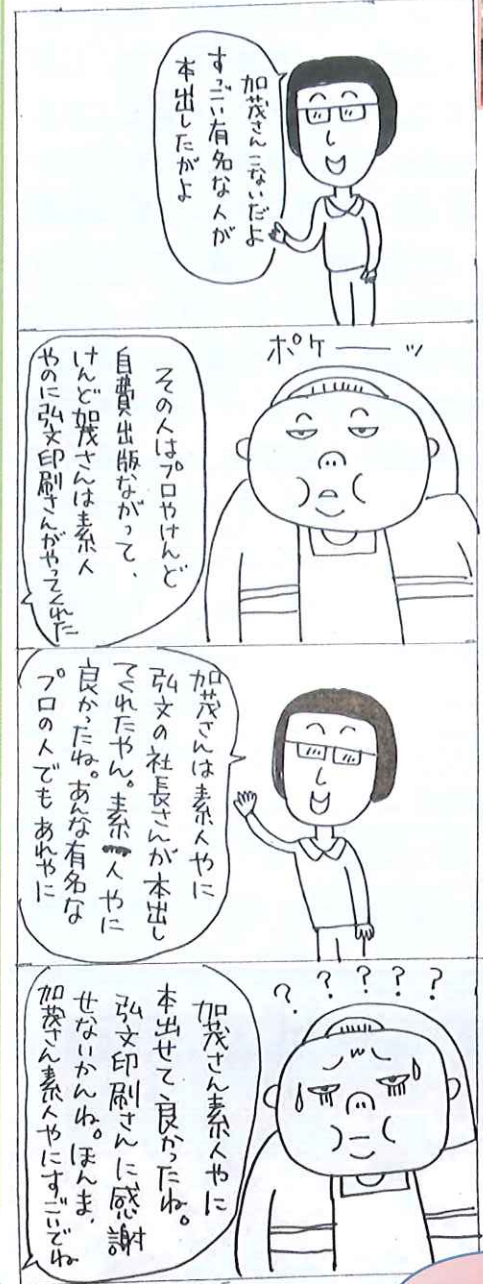 加茂さんこないだよ
すっごい有名な人が
本出したがよ
ポケーーッ
その人はプロやけんど
自費出版ながって、
けんど加茂さんは素人
やのに弘文印刷さんがやってくれた
加茂さんは素人やに
弘文の社長さんが本出し
てくれたやん。素人やに
良かったね。あんな有名な
プロの人でもあれやに
? ? ? ? ?
加茂さん素人やに
本出せて良かったね。
弘文印刷さんに感謝
せないかんね。ほんま、
加茂さん素人やにすごいでね